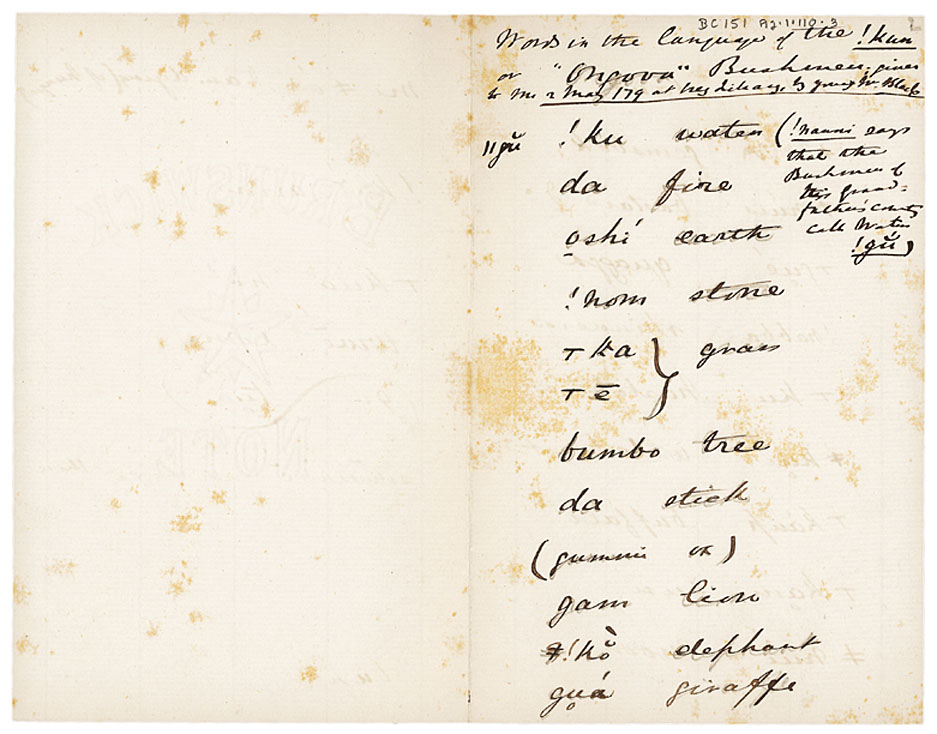 BC 151 A2.1.110.3
Words in the Language of the !kun
or "Ongova" Bushmen, given
to me 2 May 179 at by young Mr.
||gŭ !ku water (!nanni says
that the
Bushmen of
his grand-
father's country
call Water
!gŭ)
da fire
oshí earth
!nom stone
т ka } grass
т ē
bumbo tree
da stick
(gummi ox)
gam lion
!kȍ elephant
gu̥á giraffe